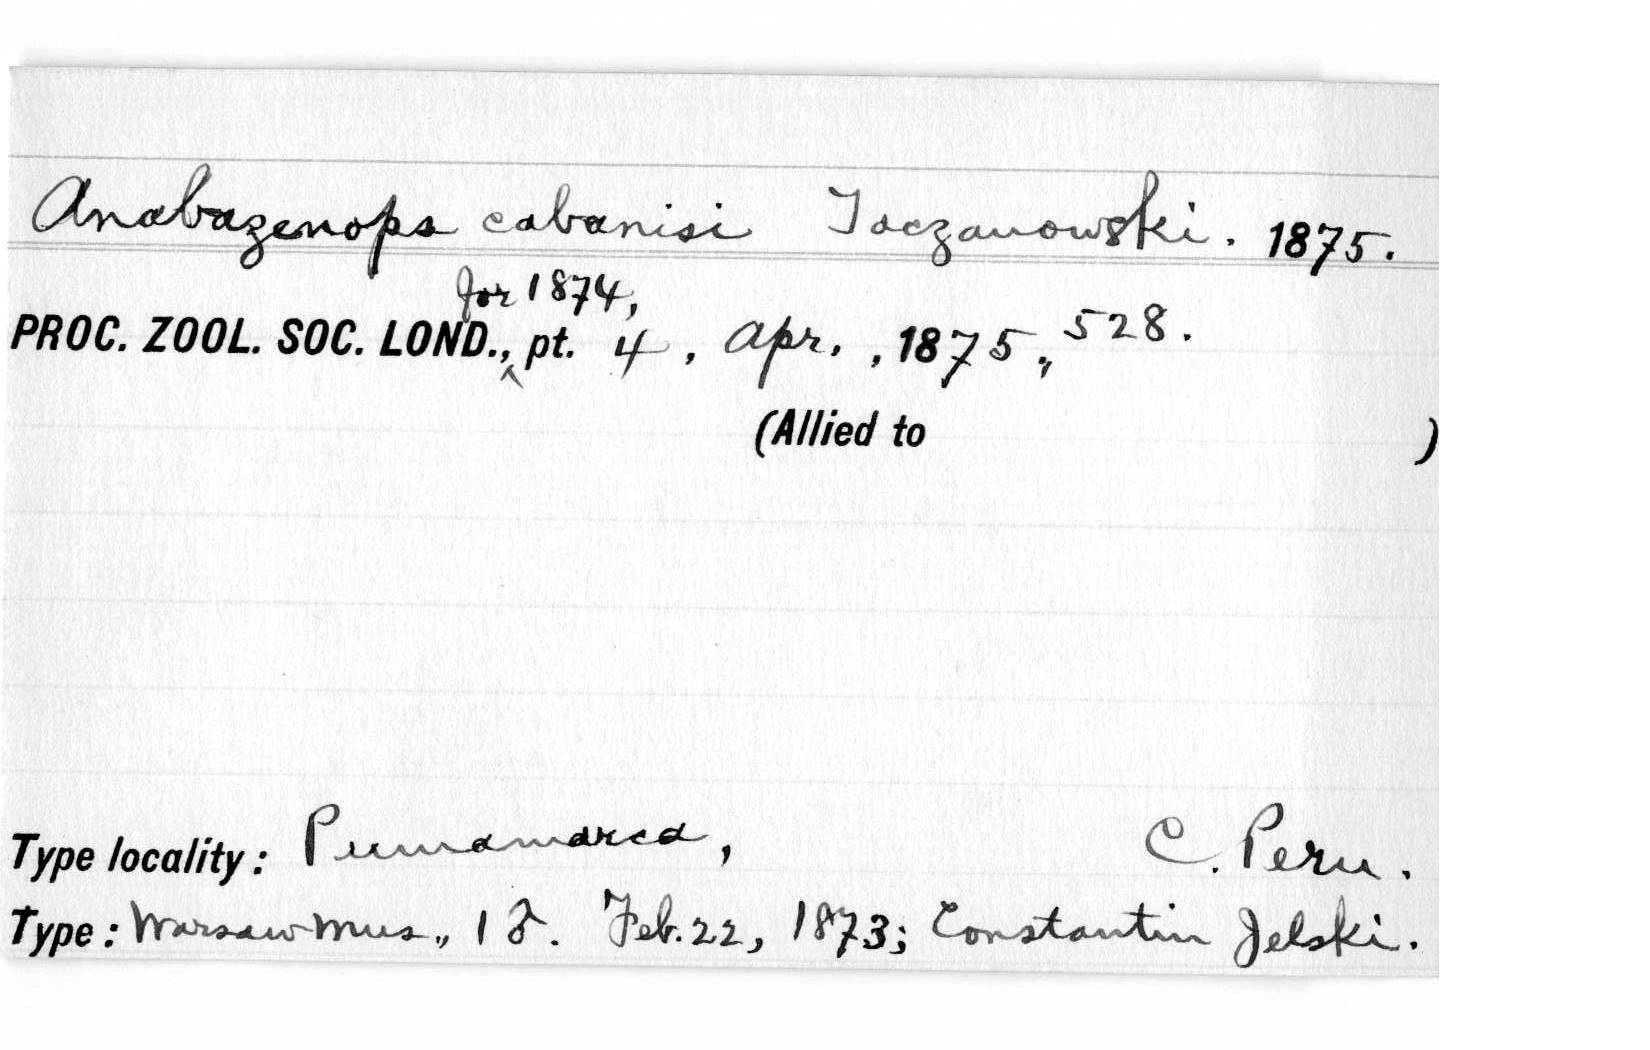 Anabazenops cabanisi Taczanowski. 1875.
for 1874,
PROC. ZOOL. SOC. LOND.,‸ pt. 4, Apr., 1875., 528.
(Allied to )
Type locality: Pumamarca, C. Peru.
Type: Warsaw Mus., 1 ♂. Feb. 22, 1873; Constantin Jelski.